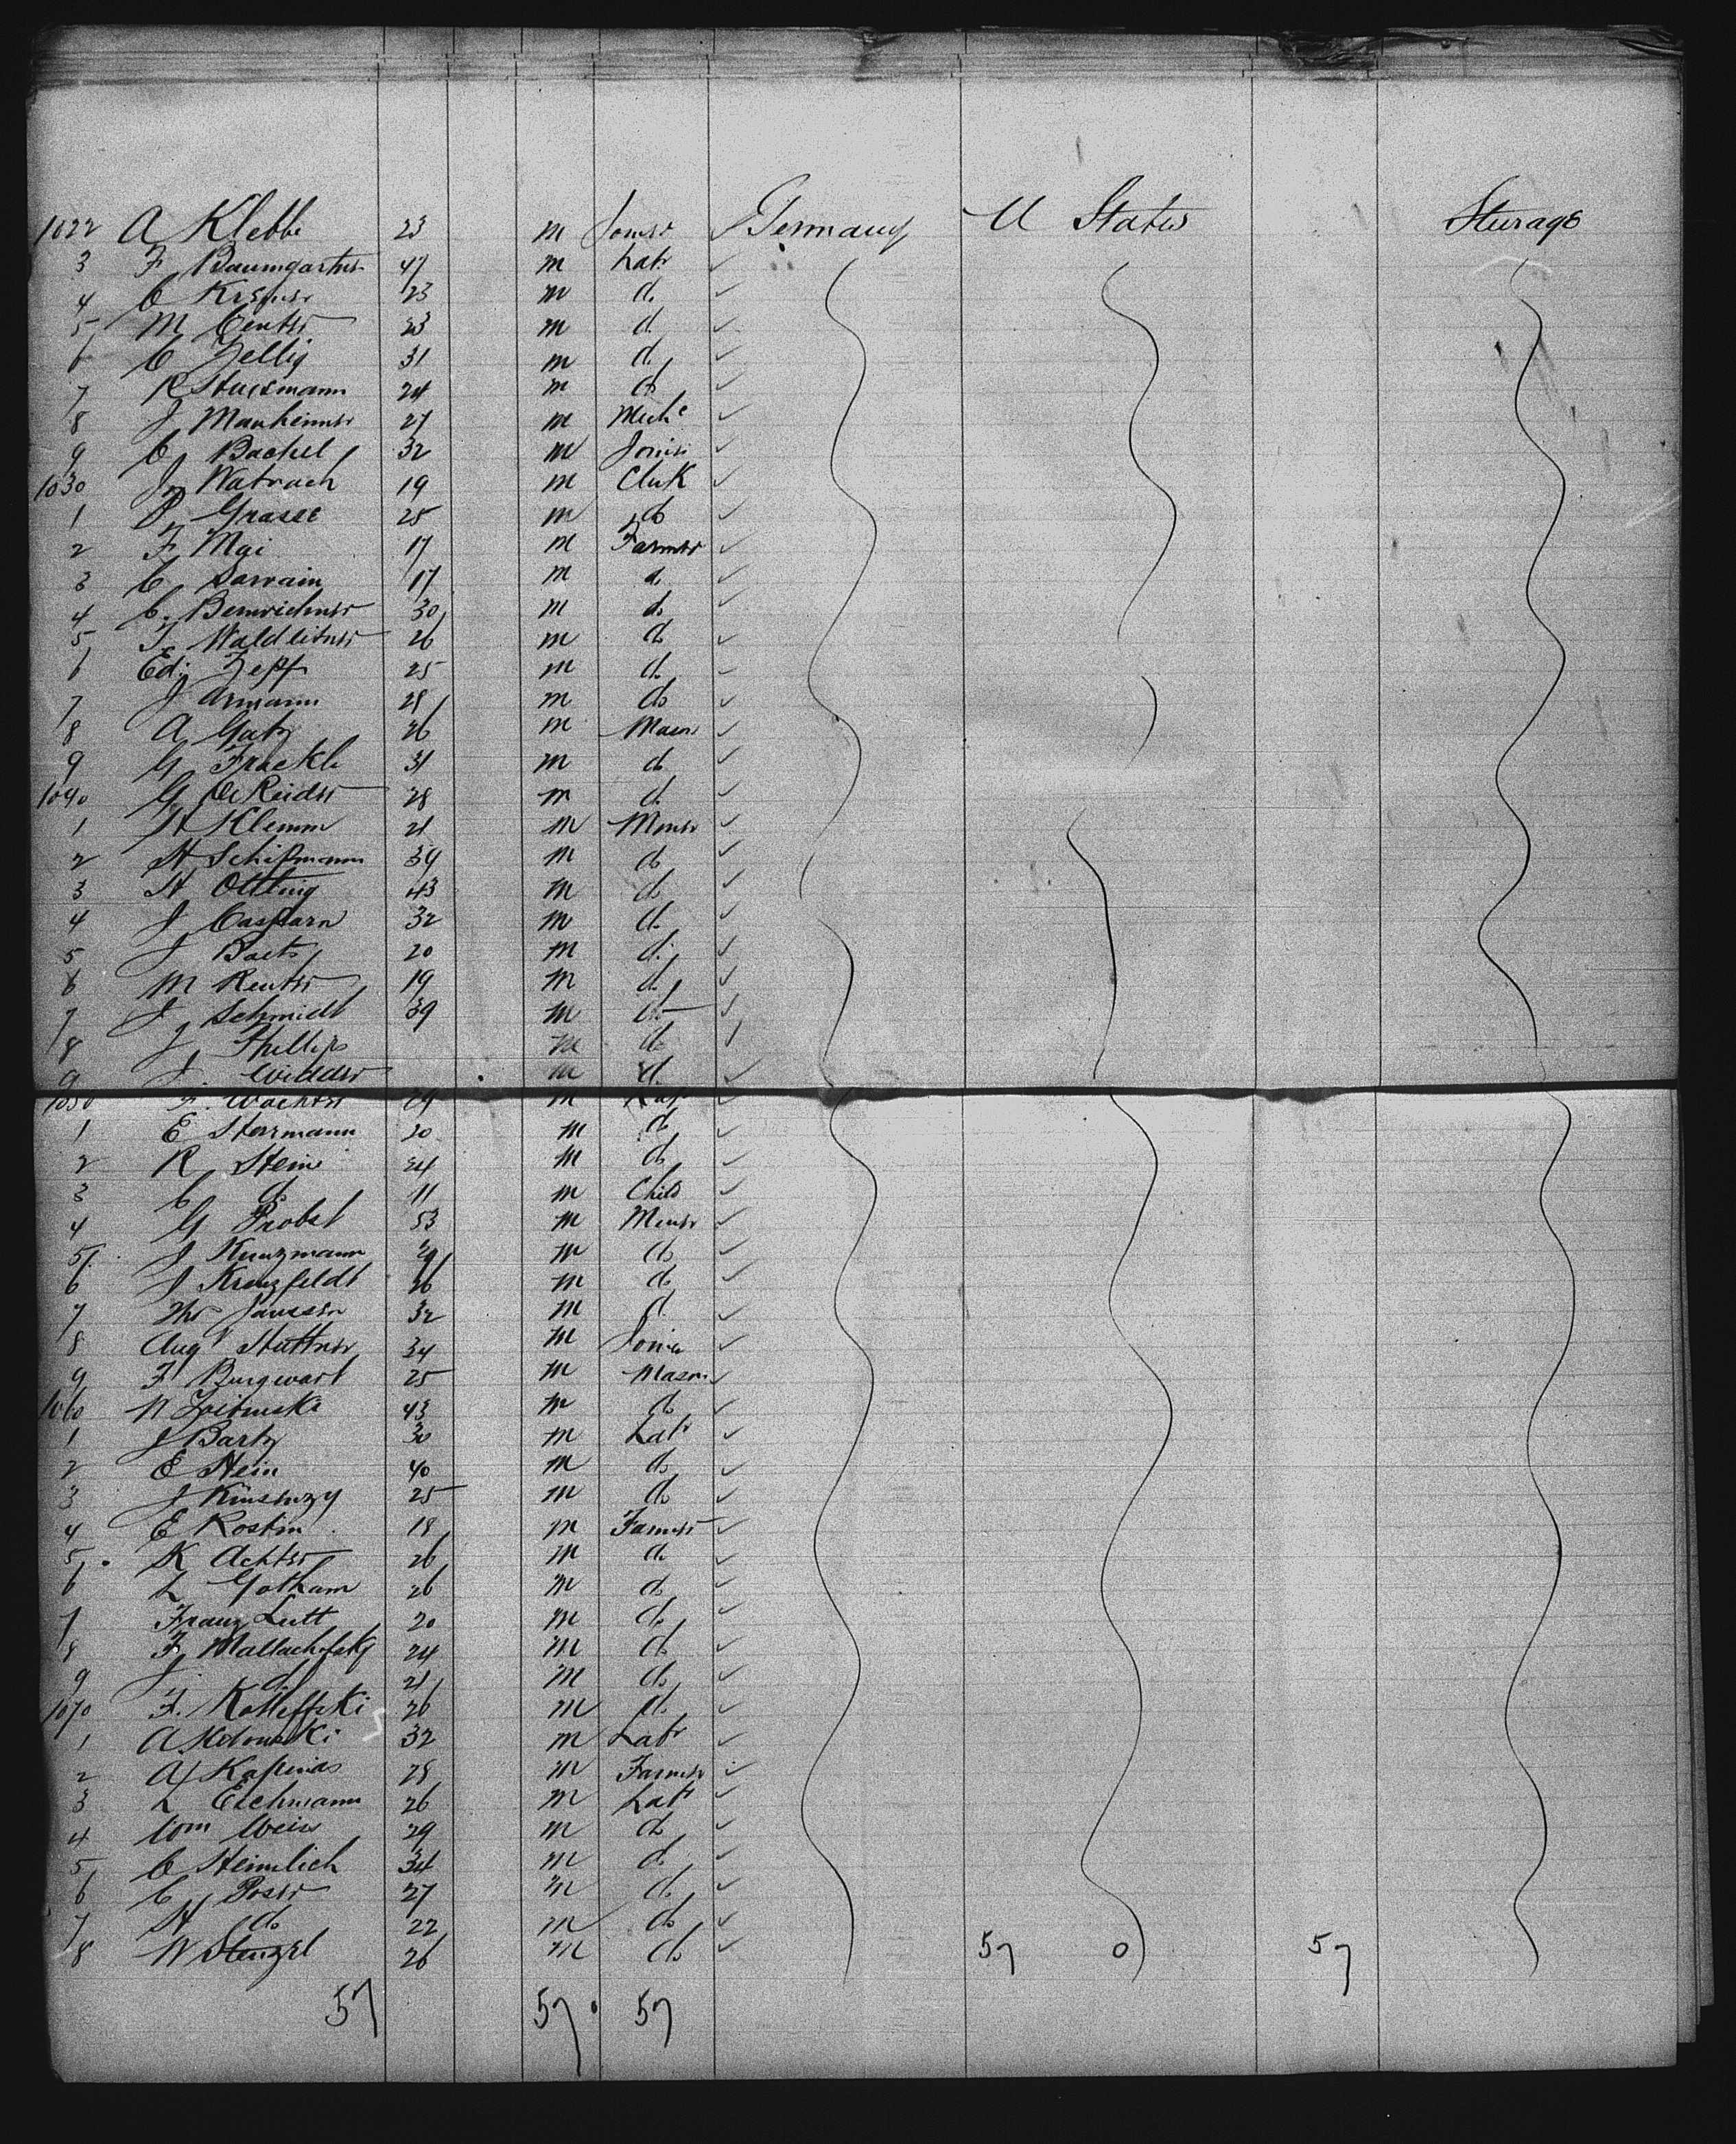 1022 A Klebbe 23 m Joiner Germany U States Sturage
3 F Baumgartner 47 m Labr
4 C 23 m do
5 M Center 23 m do
6 C Zellig 31 m do
7 R 24 m do
8 J Manheimer 27 m Mech
9 C Bachel 32 m Joiner
1030 J Watrach 19 m Clerk
1 P Grasse 25 m do
2 F Mai 17 m Farmer
3 C Sarrain 17 m do
4 C 30 m do
5 26 m do
6 Ed. Zepf 25 m do
7 J Armann 28 m do
8 A Gatz 26 m Mason
9 G Frackle 31 m do
1040 G 28 m do
1 H Klemm 21 m Miner
2 H Schipmann 39 m do
3 H Ottling 43 m do
4 J Casparn 32 m do
5 J Baets 20 m do
6 M Renter 19 m do
7 J Schmidt 39 m do
8 J Phillips m do
9 J. Widder m do
1050 F. Wachter m
1 E Storrmann 20 m do
2 R Stein 34 m do
3 C do 11 m Child
4 G Probst 53 m Miner
5 J Kunzmann 29 m do
6 J Kreuzfeldt 26 m do
7 Janssen 32 m do
8 Augt Stuttner 34 m Joiner
9 F Burgwart 25 m Mason
1060 N 43 m do
1 J Bartz 30 m Labr
2 E Stein 40 m do
3 J 25 m do
4 E Rostin 18 m Farmer
5 K Achter 26 m do
6 L Gotham 26 m do
7 Franz Lutt 20 m do
8 F Mallachofsky 24 m do
9 J do 21 m do
1070 F. 26 m do
1 A 32 m Labr
2 A Kapinas 28 m Farmer
3 L Eichmann 26 m Labr
4 Wm Weiss 29 m do
5 C Heimlich 34 m do
6 C Poser 27 m do
7 H do 22 m do
8 W Stenzel 26 m do 57 0 57
57 57 57